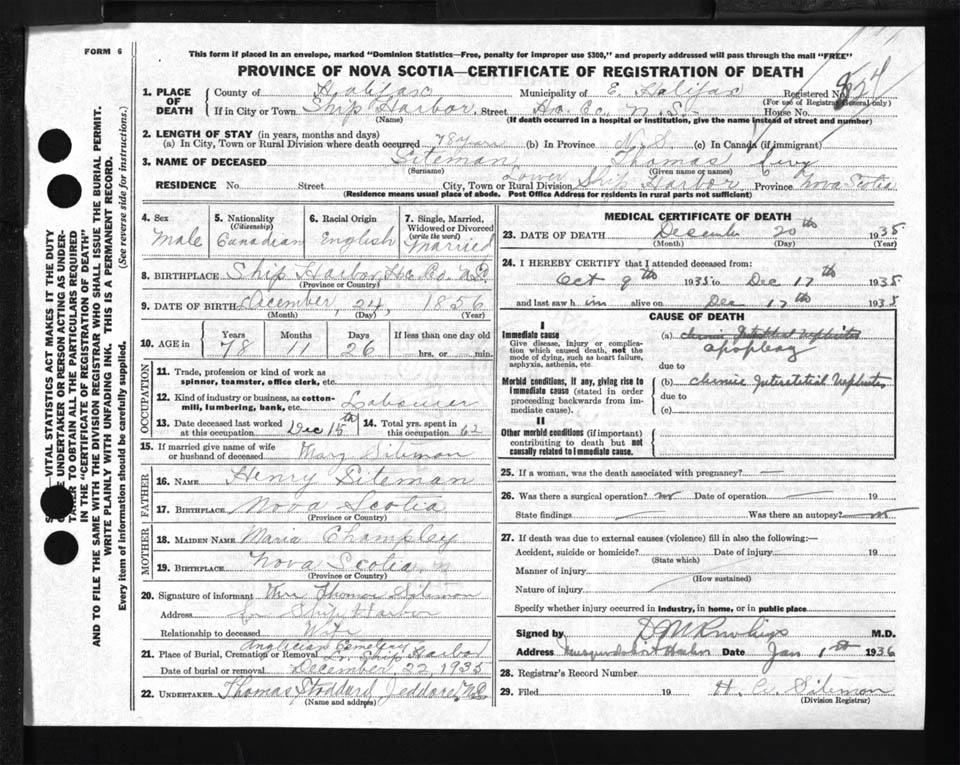 FORM 6
This form if placed in an envelope, marked "Dominion Statistics—Free, penalty for improper use $300," and properly addressed will pass through the mail "FREE"
PROVINCE OF NOVA SCOTIA—CERTIFICATE OF REGISTRATION OF DEATH
1. PLACE OF DEATH County of Halifax Municipality of E. Halifax Registered No.
(For use of Registrar General only)
If in City or Town Ship Harbor Street Ha. Co. N.S. House No.
(Name) (If death occurred in a hospital or institution, give the name instead of street and number)
2. LENGTH OF STAY (in years, months and days)
(a) In City, Town or Rural Division where death occurred 78 years (b) In Province N.S. (c) In Canada (if immigrant)
3. NAME OF DECEASED Siteman Thomas Levy
(Surname) (Given name or names)
RESIDENCE No. Street City, Town or Rural Division Lower Ship Harbor Province Nova Scotia
(Residence means usual place of abode. Post Office Address for residents in rural parts not sufficient)
4. Sex Male
5. Nationality (Citizenship) Canadian
6. Racial Origin English
7. Single, Married, Widowed or Divorced (write the word) Married
8. BIRTHPLACE Ship Harbor, Ha. Co. N.S.
(Province or Country)
9. DATE OF BIRTH December, 24, 1856
(Month) (Day) (Year)
10. AGE in Years 78 Months 11 Days 26 If less than one day old hrs. or min.
OCCUPATION
11. Trade, profession or kind of work as spinner, teamster, office clerk, etc.
12. Kind of industry or business, as cotton-mill, lumbering, bank, etc. Labourer
13. Date deceased last worked at this occupation Dec 15th
14. Total yrs. spent in this occupation 62
15. If married give name of wife or husband of deceased Mary Siteman
FATHER
16. NAME Henry Siteman
17. BIRTHPLACE Nova Scotia
(Province or Country)
MOTHER
18. MAIDEN NAME Maria Champley
19. BIRTHPLACE Nova Scotia
(Province or Country)
20. Signature of informant Mrs Thomas Siteman
Address Ship Harbor
Relationship to deceased Wife
21. Place of Burial, Cremation or Removal Anglician Cemetery Lr. Ship Harbor
Date of burial or removal December 22, 1935
22. UNDERTAKER Thomas Stoddard, Jeddore, N.S.
(Name and address)
MEDICAL CERTIFICATE OF DEATH
23. DATE OF DEATH December 20th 1935
(Month) (Day) (Year)
24. I HEREBY CERTIFY that I attended deceased from:
Oct 9th 1935 to Dec 17th 1935
and last saw him alive on Dec 17th 1935
CAUSE OF DEATH
I
Immediate cause
Give disease, injury or complication which caused death, not the mode of dying, such as heart failure, asphyxia, asthenia, etc.
(a) chronic Interstitial Nephritis
apoplexy
due to
Morbid conditions, if any, giving rise to immediate cause (stated in order proceeding backwards from immediate cause).
(b) chronic Interstitial Nephritis
due to
(c)
II
Other morbid conditions (if important) contributing to death but not causally related to immediate cause.
25. If a woman, was the death associated with pregnancy? —
26. Was there a surgical operation? no Date of operation — 19
State findings — Was there an autopsy? no
27. If death was due to external causes (violence) fill in also the following:—
Accident, suicide or homicide? Date of injury 19
(State which)
Manner of injury
(How sustained)
Nature of injury
Specify whether injury occurred in industry, in home, or in public place
Signed by D M Rawlings M.D.
Address Musquodoboit Harbor Date Jan 1st 1936
28. Registrar's Record Number
29. Filed 19 H. W. Siteman
(Division Registrar)
VITAL STATISTICS ACT MAKES IT THE DUTY
UNDERTAKER OR PERSON ACTING AS UNDER-
TAKER TO OBTAIN ALL THE PARTICULARS REQUIRED
IN THE "CERTIFICATE OF REGISTRATION OF DEATH"
AND TO FILE THE SAME WITH THE DIVISION REGISTRAR WHO SHALL ISSUE THE BURIAL PERMIT.
WRITE PLAINLY WITH UNFADING INK. THIS IS A PERMANENT RECORD.
Every item of information should be carefully supplied. (See reverse side for instructions.)